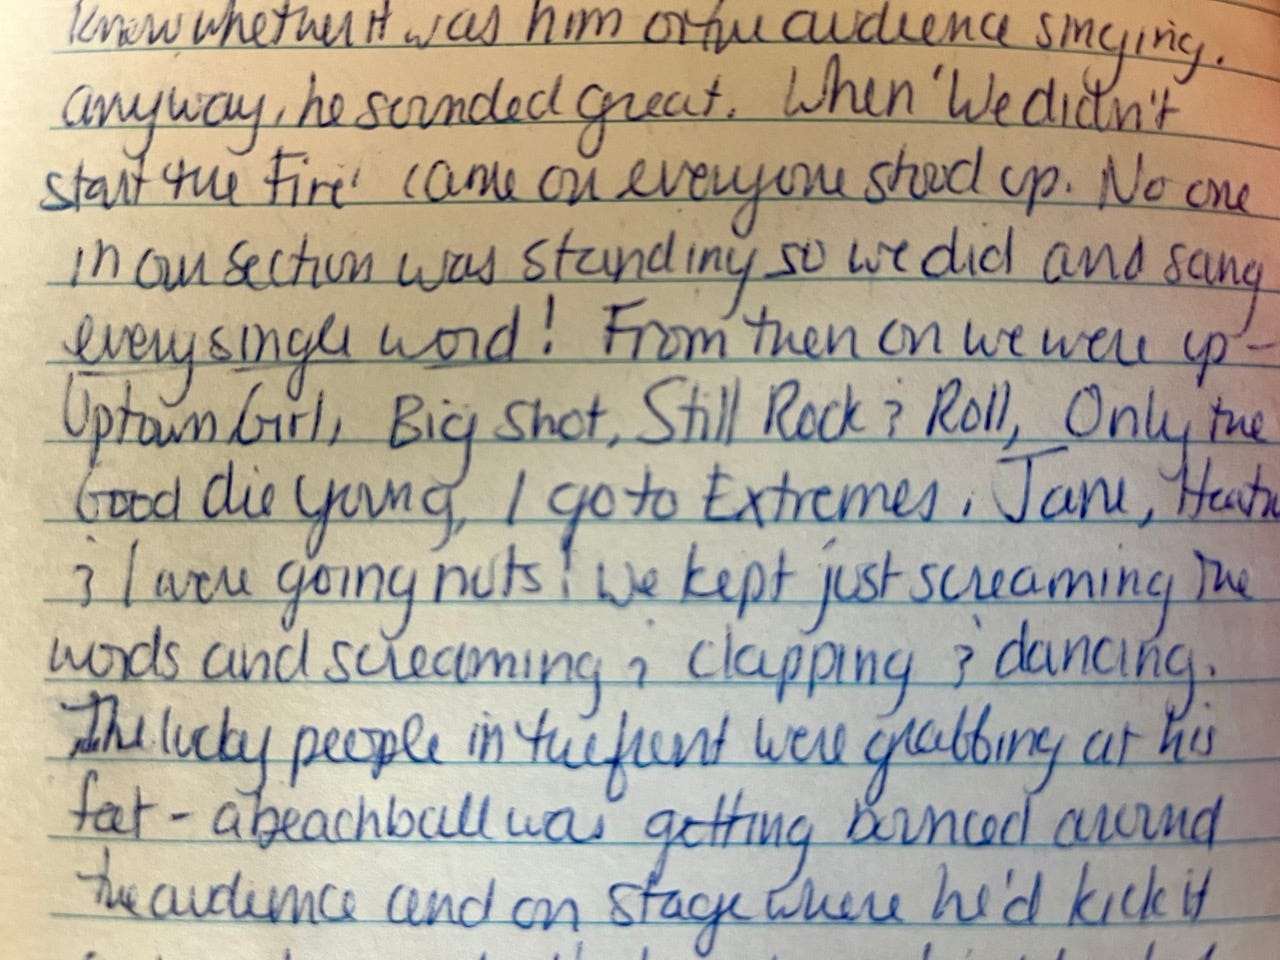 know whether it was him or the audience singing.
anyway, he sounded great. When 'We didn't
start the Fire' came on everyone stood up. No one
in our section was standing so we did and sang
every single word! From then on we were up -
Uptown Girl, Big Shot, Still Rock & Roll, Only the
Good die young, I go to Extremes. Jane, Heath
& I were going nuts! We kept just screaming the
words and screaming & clapping & dancing.
The lucky people in the front were grabbing at his
feet - a beachball was getting bounced around
the audience and on stage where he'd kick it